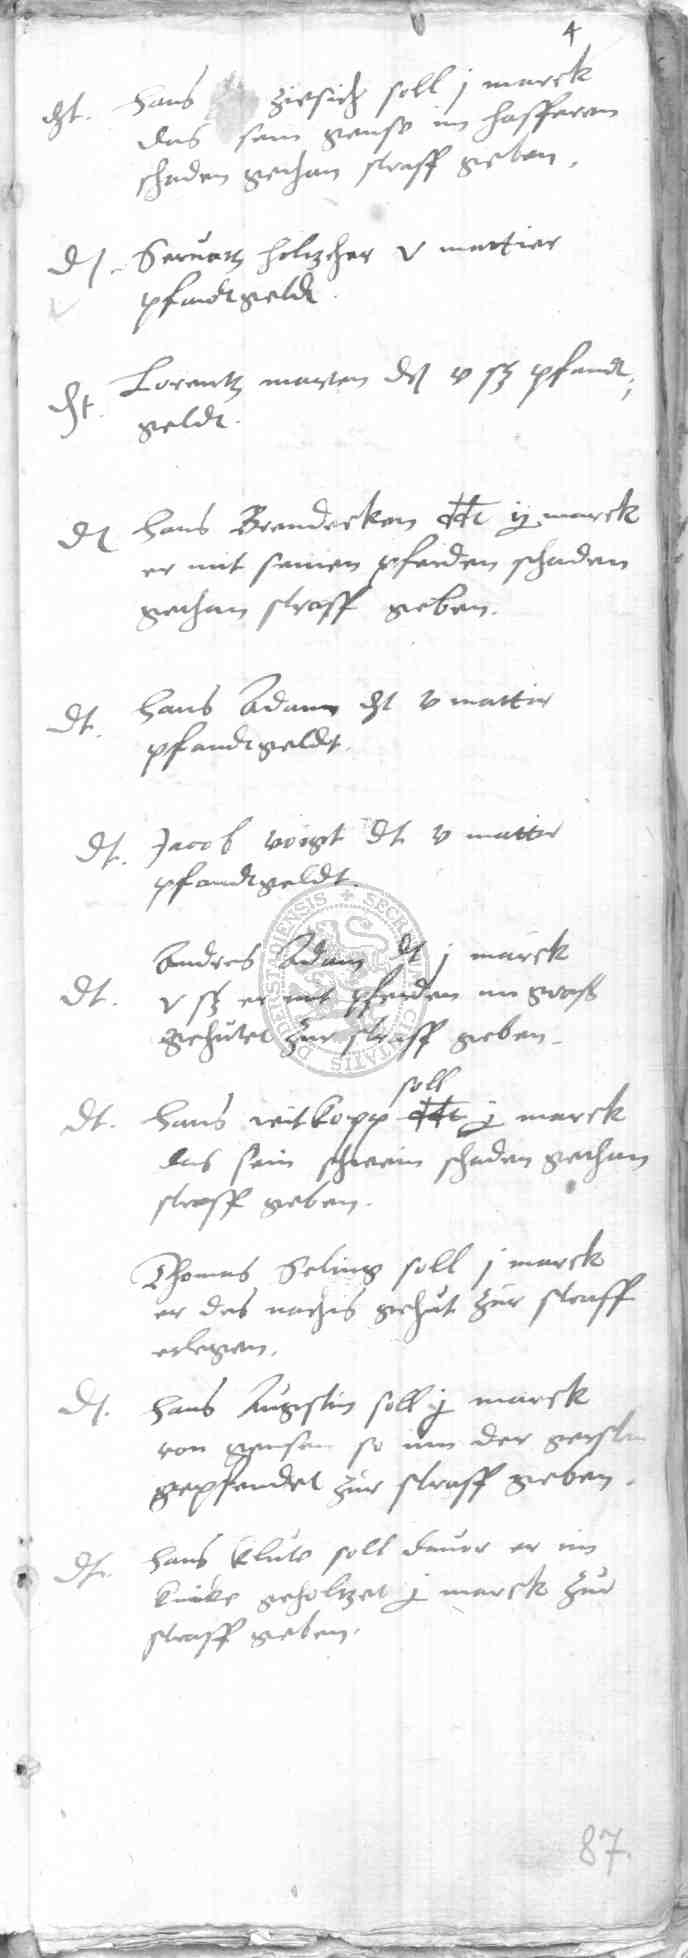 4
dt. Hans Ziesich soll j marck
das sein gense im hafferen
schaden gethan straff geben.
dt. Seruatz holtzcher v mattier
pfandtgeldt.
dt. Lorentz marten dt v ß pfandt,
geldt.
dt Hans Brendecken dt ij marck
er mit seinen pferden schaden
gethan straff geben.
dt. Hans Adam dt v mattir
pfandtgeldt.
dt. Jacob voigt dt v mattir
pfandtgeldt.
Andres Adam dt j marck
dt. v ß er mit pferden im graß
gehütet zur straff geben.
soll
dt. Hans witkopp dt ij marck
das sein schwein schaden gethan
straff geben.
Thomas Seling soll j marck
er des nachts gehüt zur straff
erlegen.
dt. Hans Augstin soll ij marck
von gensen so inn der gersten
gepfendet zur straff geben.
dt. Hans Klüts soll dauor er im
geholtzet ij marck zur
straff geben.
87.
SECRETUM CIVITATIS DUDERSTADIENSIS